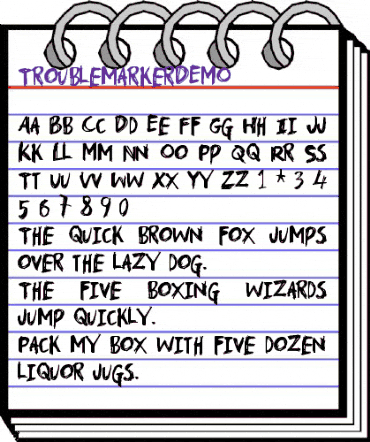 TROUBLEMARKERDEMO
AA BB CC DD EE FF GG HH II JJ
KK LL MM NN OO PP QQ RR SS
TT UU VV WW XX YY ZZ 1 * 3 4
5 6 7 8 9 0
THE QUICK BROWN FOX JUMPS
OVER THE LAZY DOG.
THE FIVE BOXING WIZARDS
JUMP QUICKLY.
PACK MY BOX WITH FIVE DOZEN
LIQUOR JUGS.